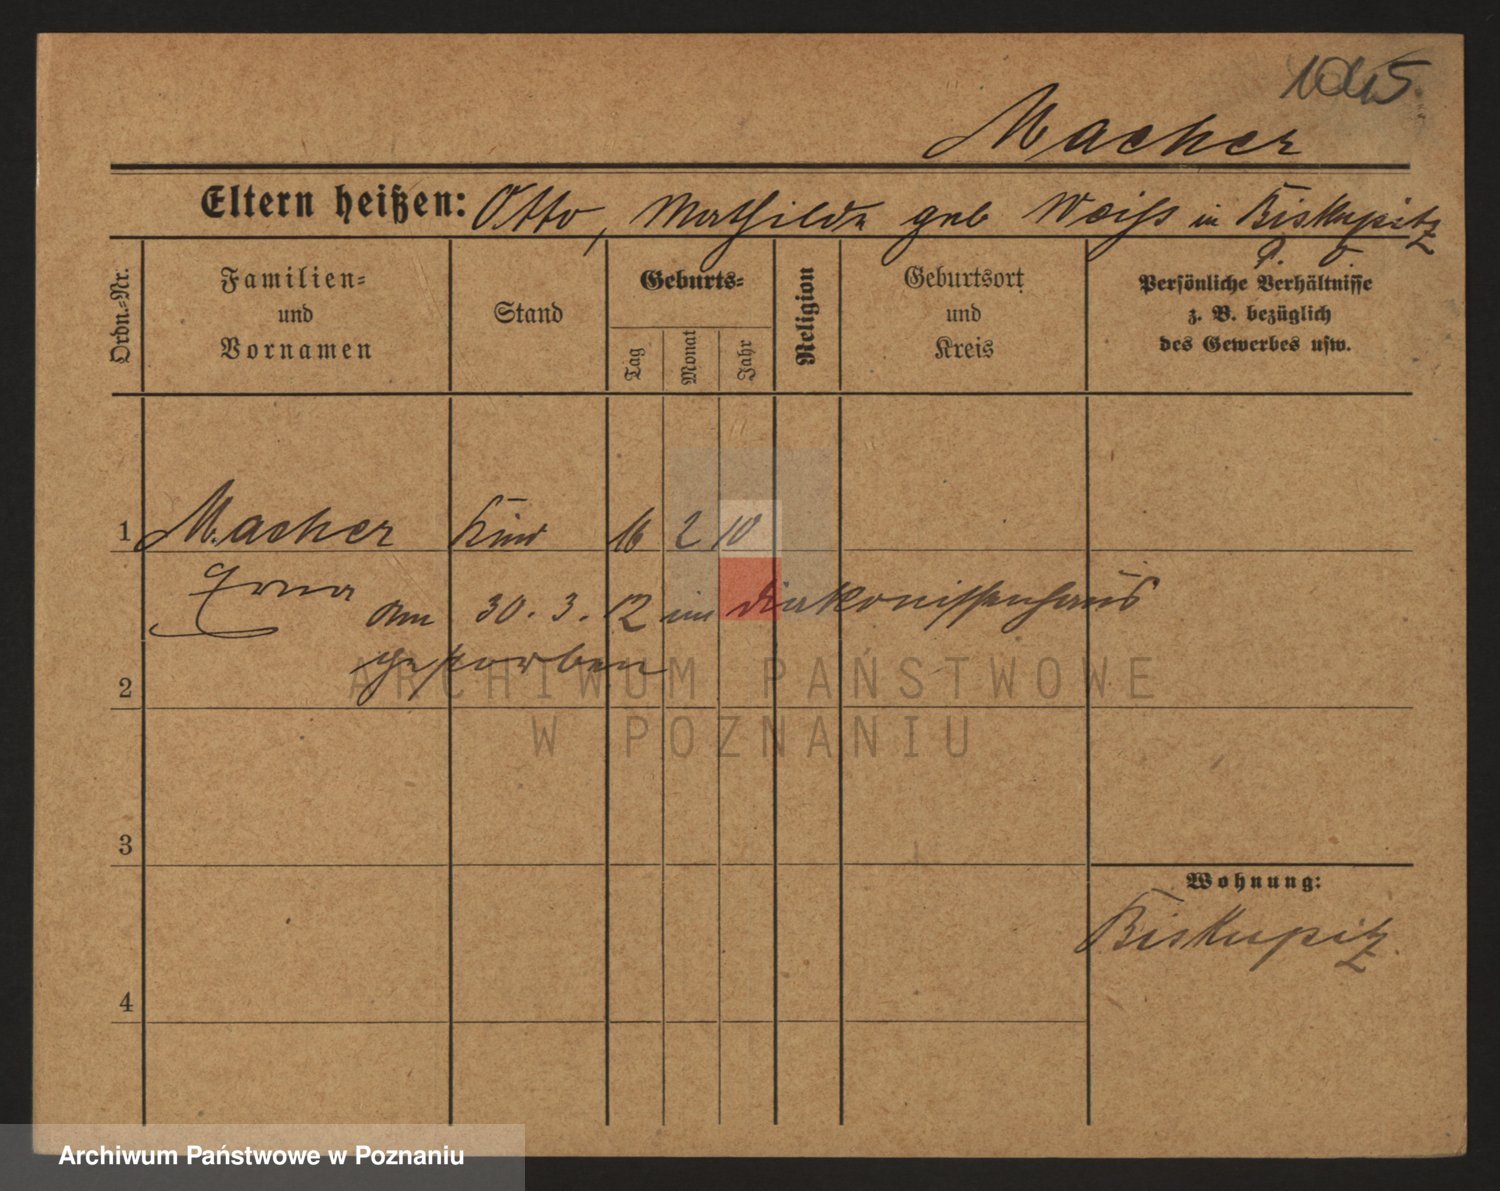 Macher
Eltern heißen: Otto, Mathilde geb Weiss in Biskupitz
Ordn.-Nr.
Familien- und Vornamen
Stand
Geburts-
Tag
Monat
Jahr
Religion
Geburtsort und Kreis
Persönliche Verhältnisse
z. B. bezüglich
des Gewerbes usw.
1 Macher Kind 16 2 10
Erna
am 30. 3. 12 im Diakonissenhaus
gestorben
2
3
4
Wohnung:
Biskupitz.
ARCHIWUM PAŃSTWOWE
W POZNANIU
Archiwum Państwowe w Poznaniu